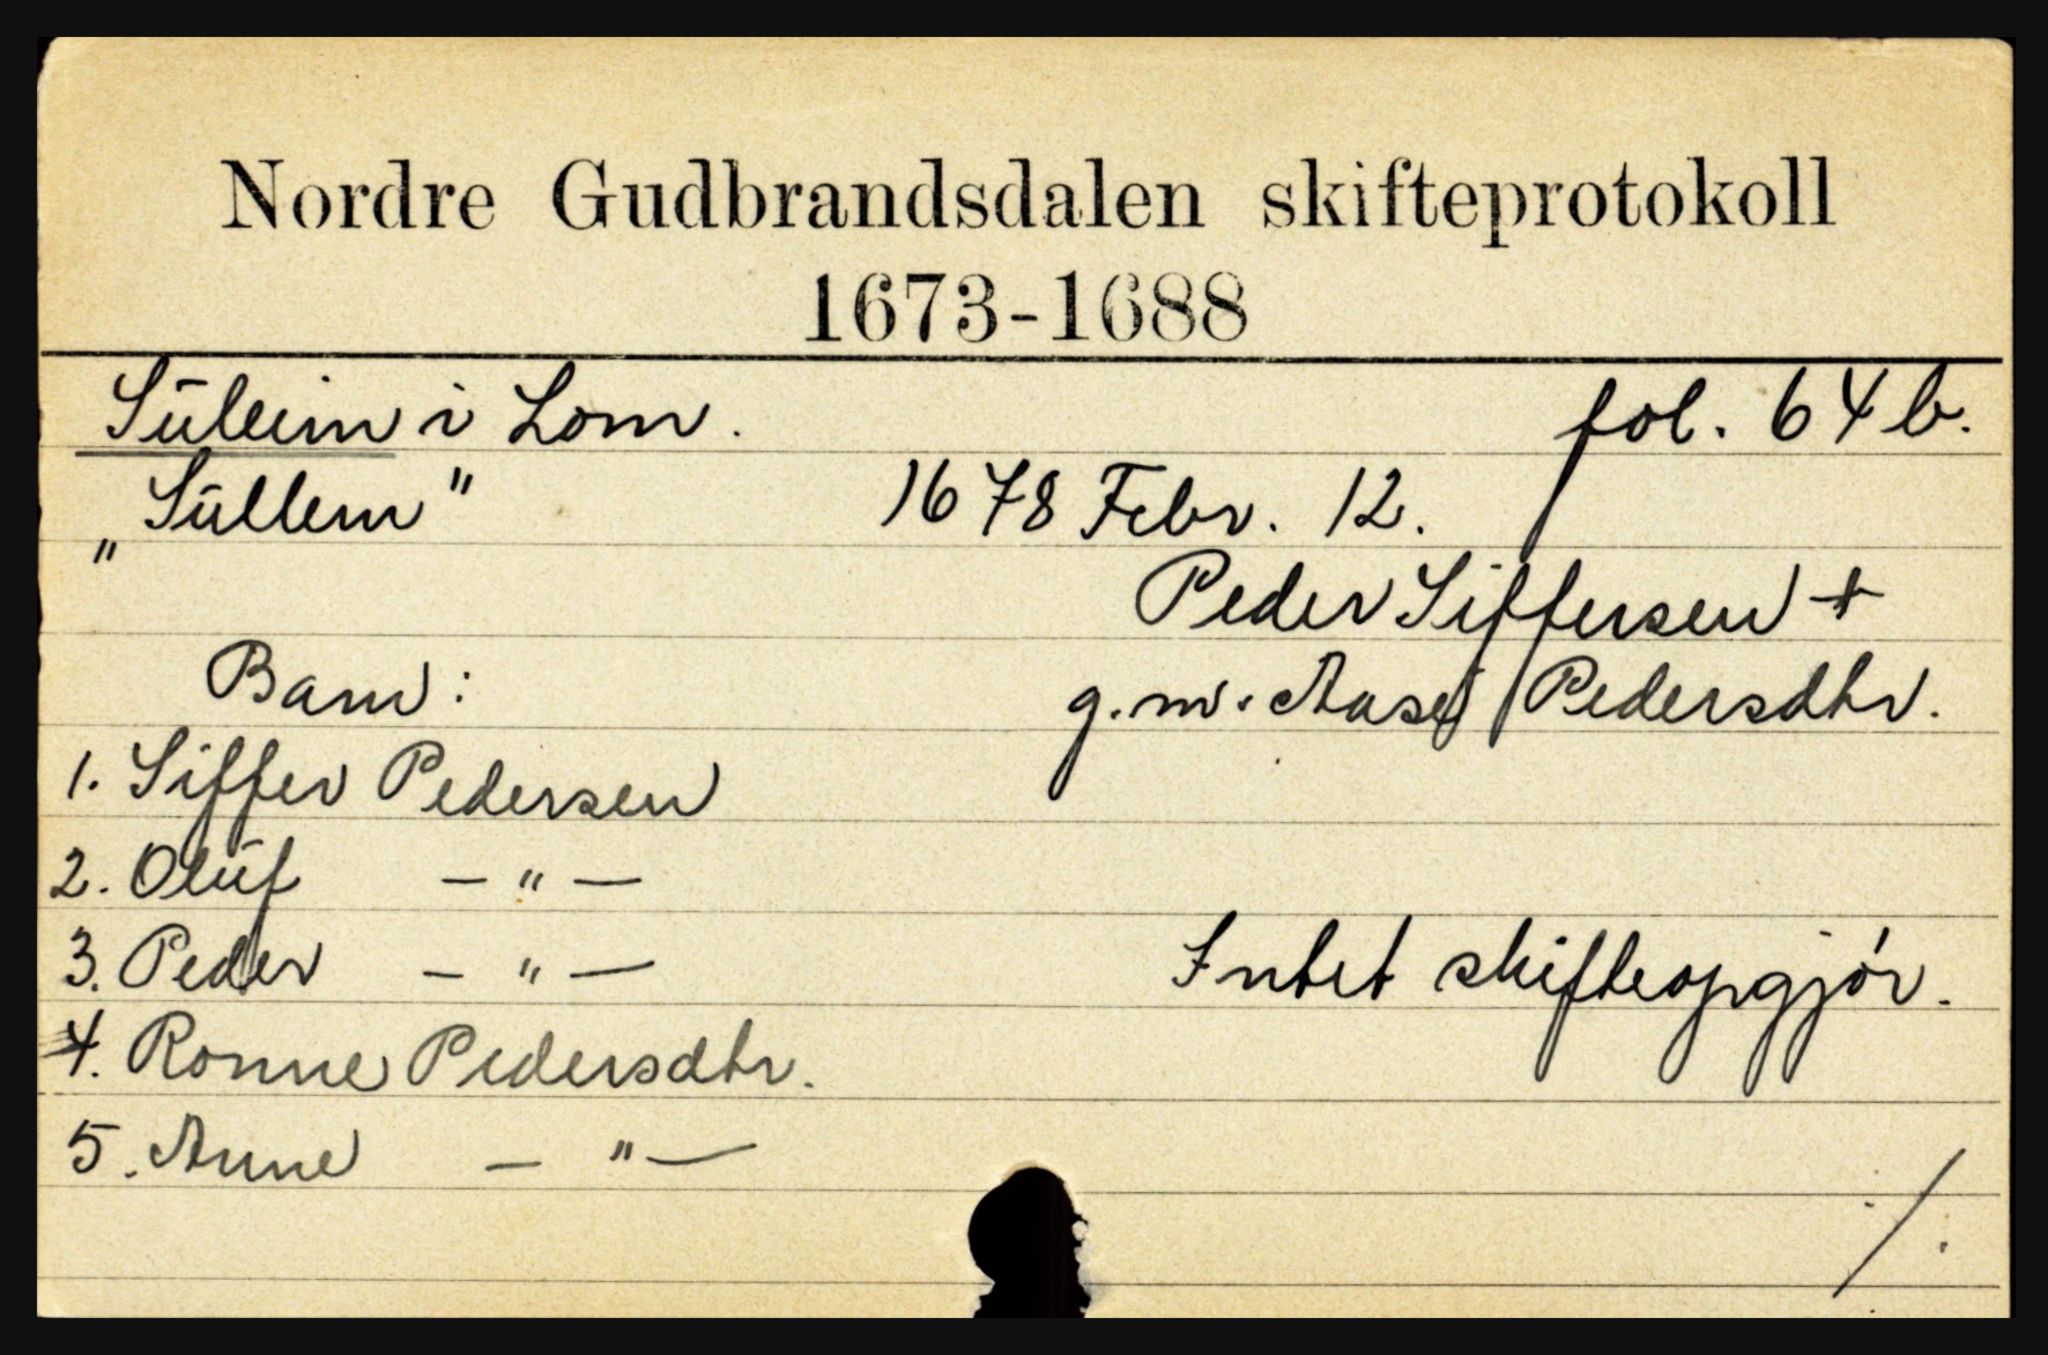 Nordre Gudbrandsdalen skifteprotokoll
1673-1688
Sūleim i Lom. fol. 64 b.
„Sūllem" 1678 Febr. 12.
Peder Siffersen +
Barn: g.m. Aase Pedersdtr.
1. Siffer Pedersen
2. Olūf — " —
3. Peder — " — Intet skifteopgjór.
4. Ronne Pedersdtr.
5. Anne — " —
./.